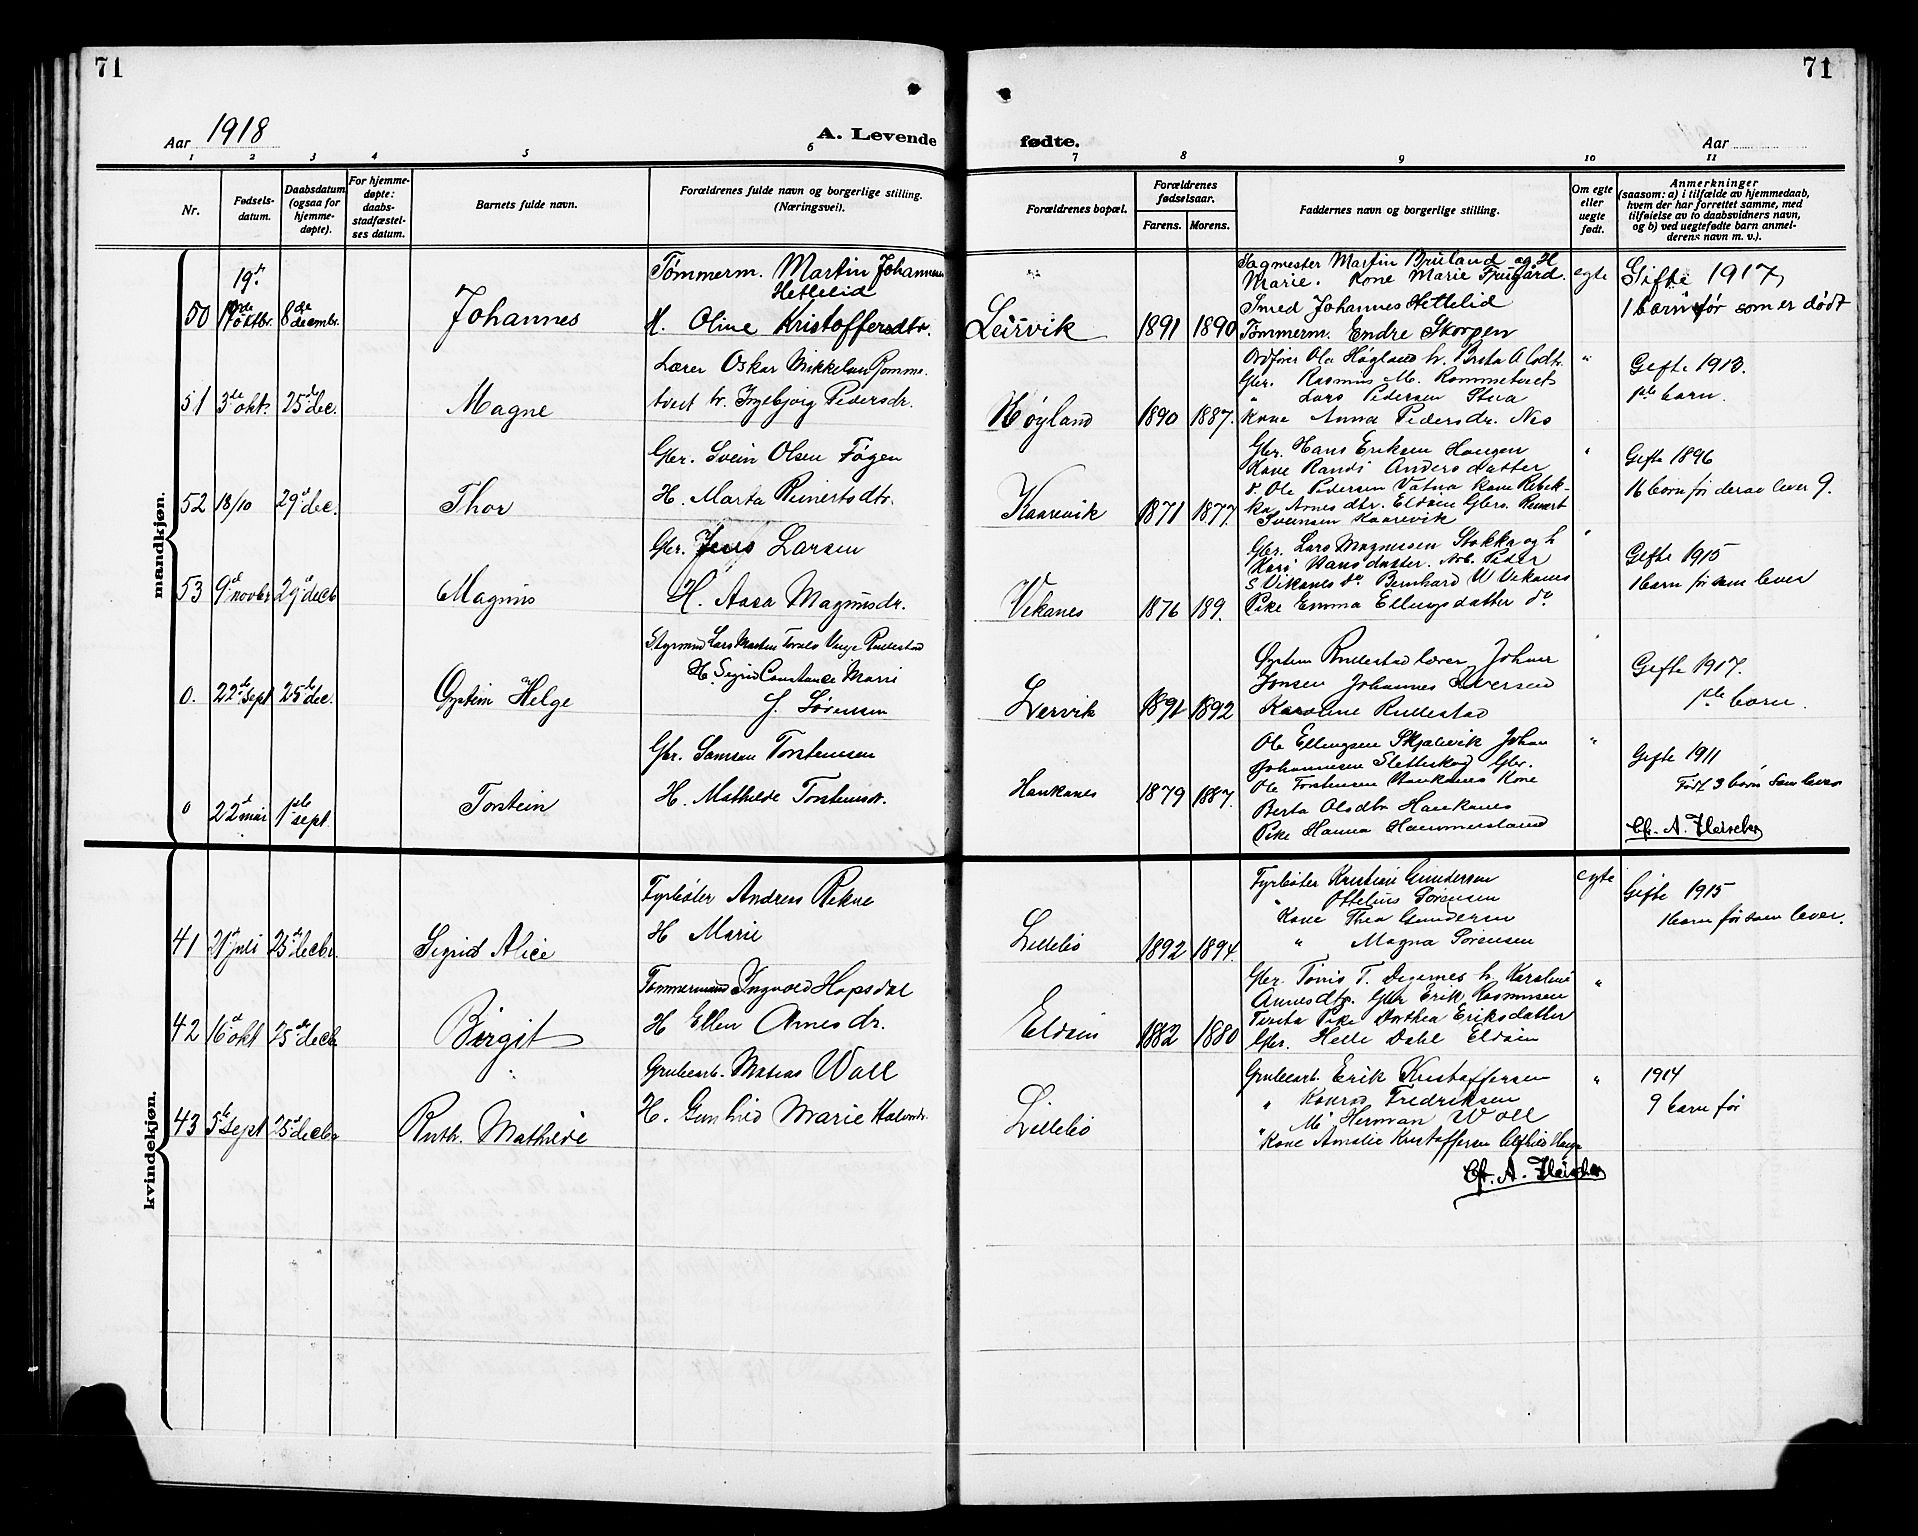 71
71
Aar 1918
A. Levende
fødte.
Aar
1 2 3 4 5 6 7 8 9 10 11
Nr.
Fødsels-
datum.
Daabsdatum
(ogsaa for
hjemme-
døpte).
For hjemme-
døpte:
daabs-
stadfæstel-
ses datum.
Barnets fulde navn.
Forældrenes fulde navn og borgerlige stilling.
(Næringsvei).
Forældrenes bopæl.
Forældrenes
fødselsaar.
Farens. Morens.
Faddernes navn og borgerlige stilling.
Om egte
eller
uegte
født.
Anmerkninger
(saasom: a) i tilfælde av hjemmedaab,
hvem der har forrettet samme, med
tilføielse av to daabsvidners navn,
og b) ved uegtefødte barn anmel-
derens navn m. v.).
mandkjøn.
50 19de oktbr. 8de decembr.
Johannes
Tømmerm. Martin Johannesen
Hettelid
H. Oline Kristoffersdtr.
Leirvik 1891 1890
Martin Bruland og H
Marie. Kone Marie
Smed Johannes Hettelid
Tømmerm. Endre Skorpen
egte
Gifte 1917
1 barn før som er dødt
51 3de okt. 25d dec.
Magne
Lærer Oskar Mikkelsen Romme.
tveit h. Ingebjorg Pedersdr.
Høyland 1890 1887.
Ordfører Ole Høgland h. Berta
Gbr. Rasmus M. Rommetveit
" Lars Pedersen Stua
Kone Anna Pedersdr. Nes
"
Gifte 1913.
1ste barn.
52 18/10 29d dec.
Thor
Gbr. Svein Olsen
H. Marta Reinertsdtr.
Kaarevik 1871 1877.
Gbr. Hans Eriksen Haugen
Kone Randi Andersdatter
Ole Pedersen Vatna kone Rebek-
ka Arnesdtr. Eldøin Gbr. Reinert
Svensen Kaarevik
"
Gifte 1896
16 born før derav lever 9.
53 9d novbr 29d decb
Magnus
Gbr. Jens Larsen
H. Aasa Magnusdr.
Vikanes 1876 189.
Gbr. Lars Magnussen Stokka og h
Kari Hansdatter. Arb. Peder
S Vikanes do Bernhard W Vikanes
Pike Emma Ellingsdatter do
"
Gifte 1915
1 barn før som lever
0. 22de sept 25de dec.
Øystein Helge
Styrmand Lars Martin Rullestad
H. Sigrid Constance Marie
f. Sørensen
Lervik 1891 1892
Øystein Rullestad lærer Johan
Jonsen Johannes Iversen
Karoline Rullestad
Gifte 1917.
1ste barn.
0 22d mai 1ste sept.
Torstein
Gbr. Samson Torstensen
H. Mathilde Torstensdr.
Haukanes 1879 1887.
Ole Ellingsen Skjalevik Johan
Johannesen Sletteskog Gbr.
Ole Torstensen Haukanes Kone
Berta Olsdtr Haukanes
Pike Hanna Hammersland
"
Gifte 1911
Født 3 børn som lever
Chr. A. Fleischer
kvindekjøn.
41 21d juli 25d decbr.
Sigrid Alice
Fyrbøter Andreas Rekve
H Marie
Lillebø 1892 1894.
Fyrbøter Kristian Gundersen
" Ottelius Sørensen
Kone Thea Gundersen
" Magna Sørensen
egte
Gifte 1915
1 barn før som lever.
42 16d okt 25de decb.
Birgit
Tømmermand Ingvald Hopsdal
H Ellen Arnesdr.
Eldøin 1882 1880
Gbr. Tonis T. Digernes h. Karoline
Arnesdtr. Gbr Erik Rasmusen
Pike Dorthea Eriksdatter
Gbr. Helle Dahl Eldøin
"
43 5te sept 25d decbr
Ruth. Mathilde
Grubearb. Matias Wall
H. Gunhild Marie
Lillebø
Grubearb. Erik Kristoffersen
" Konrad Fredriksen
Herman Woll
" Kone Amalie Kristoffersen
"
1914
9 barn før
Chr. A. Fleischer